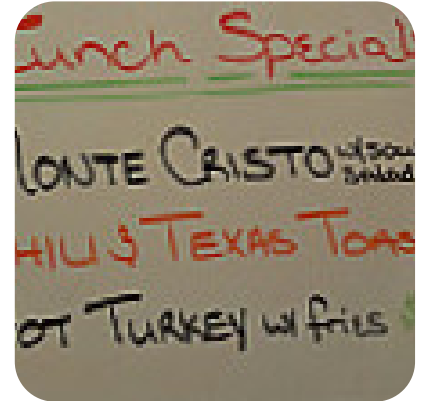 Lunch Special
MONTE CRISTO w/sou salad
HILI & TEXAS TOAS
OT TURKEY w/ fries